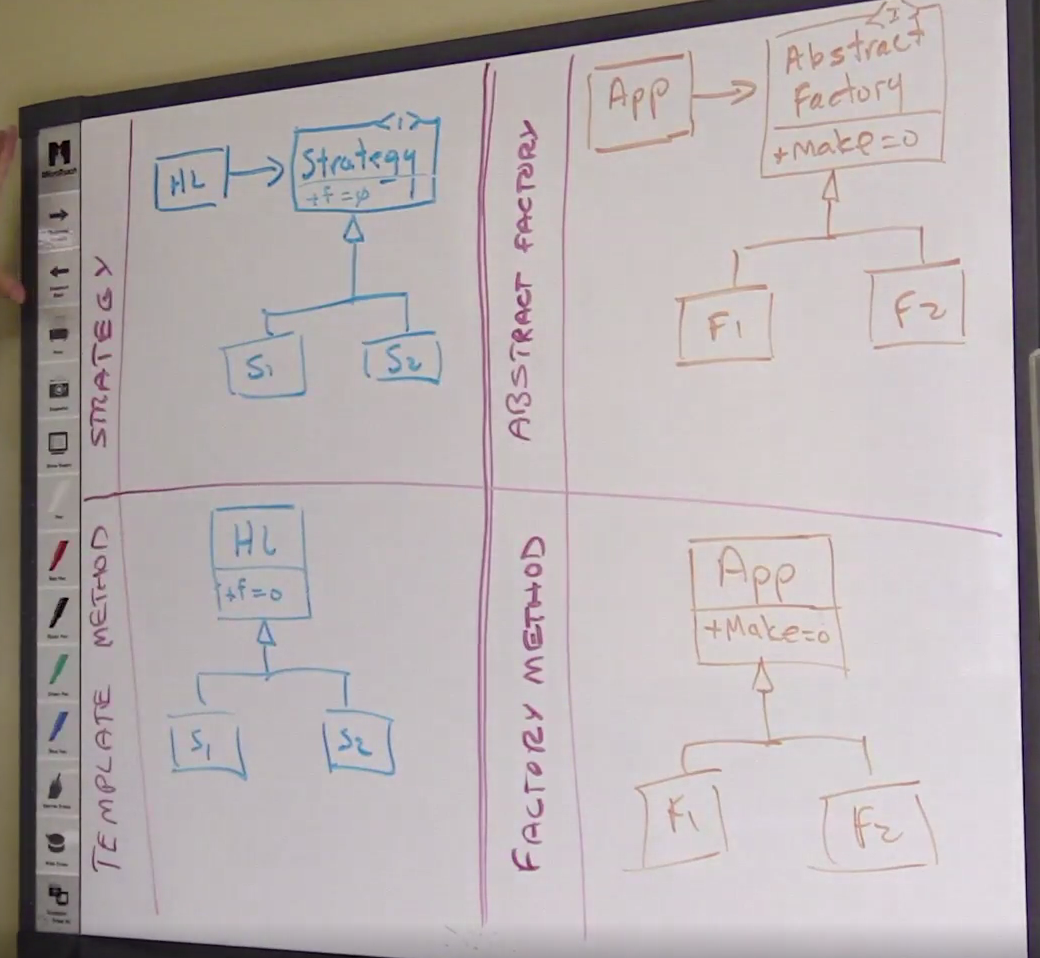 STRATEGY
HL
<I>
Strategy
+f=φ
S1
S2
ABSTRACT FACTORY
App
<I>
Abstract
Factory
+Make=0
F1
F2
TEMPLATE METHOD
HL
+f=0
S1
S2
FACTORY METHOD
App
+Make=0
F1
F2